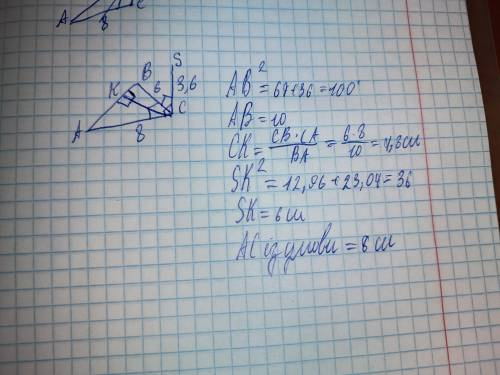 A
C
8
S
B
K
6
3,6
C
A
8
AB² = 64+36 = 100
AB = 10
CK = CB·CA/BA = 6·8/10 = 4,8 см
SK² = 12,96 + 23,04 = 36
SK = 6 см
AC із умови = 8 см